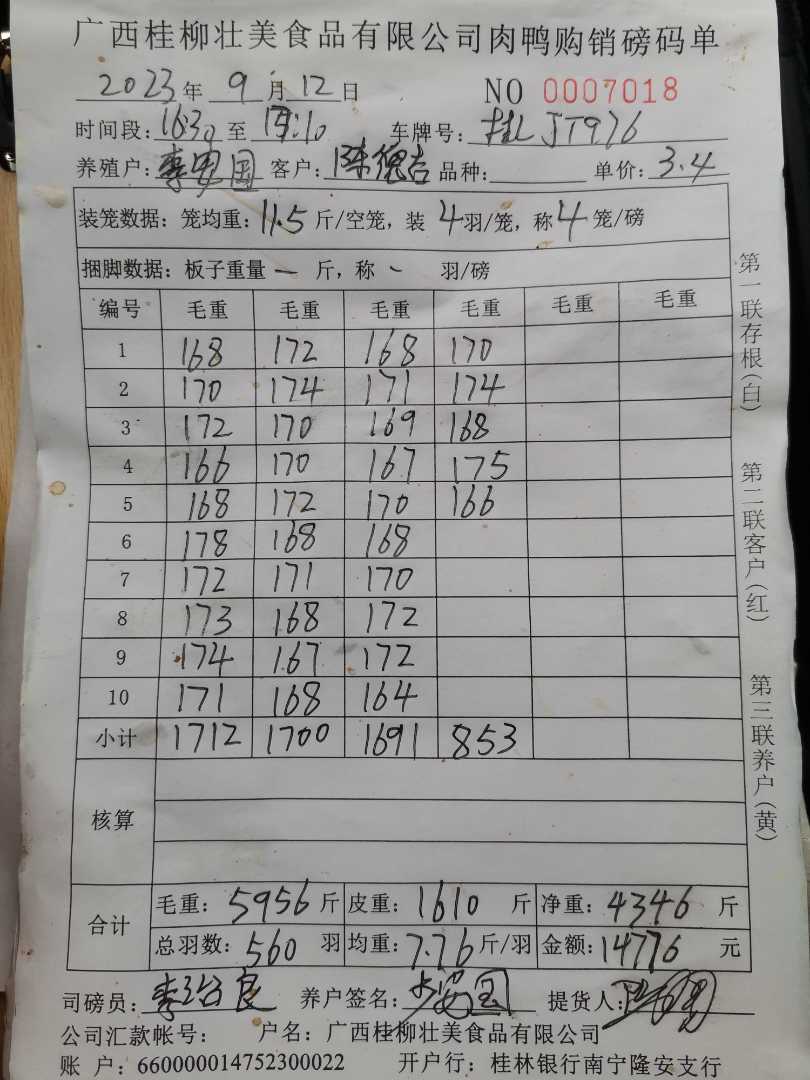 广西桂柳壮美食品有限公司肉鸭购销磅码单
2023年 9 月 12 日 NO 0007018
时间段: 1630 至 17:10 车牌号: 桂L JT976
养殖户: 李安国 客户: 陈德吉 品种: 单价: 3.4
装笼数据: 笼均重: 11.5 斤/空笼, 装 4 羽/笼, 称 4 笼/磅
捆脚数据: 板子重量 一 斤, 称 一 羽/磅
编号 毛重 毛重 毛重 毛重 毛重 毛重
1 168 172 168 170
2 170 174 171 174
3 172 170 169 168
4 166 170 167 175
5 168 172 170 166
6 178 168 168
7 172 171 170
8 173 168 172
9 174 167 172
10 171 168 164
小计 1712 1700 1691 853
核算
合计 毛重: 5956 斤 皮重: 1610 斤 净重: 4346 斤
总羽数: 560 羽 均重: 7.76 斤/羽 金额: 14776 元
司磅员: 养户签名: 提货人:
公司汇款帐号: 户名: 广西桂柳壮美食品有限公司
账 户: 660000014752300022 开户行: 桂林银行南宁隆安支行
第一联存根(白) 第二联客户(红) 第三联养户(黄)